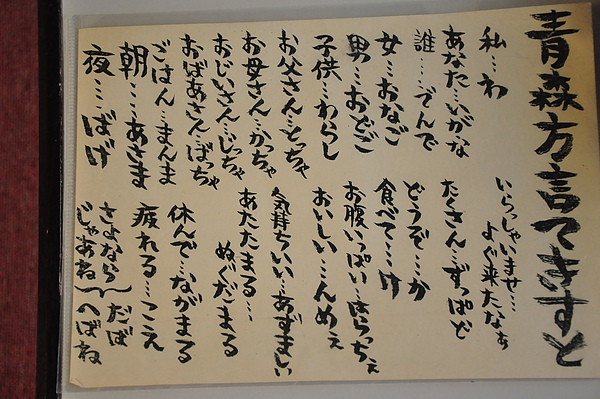 青森方言てきすと
私…わ
あなた…いがな
誰……でんで
女…おなご
男…おどご
子供…わらし
お父さん…とっちゃ
お母さん…かっちゃ
おじいさん…じっちゃ
おばあさん…ばっちゃ
ごはん…まんま
朝……あさま
夜…ばげ
いらっしゃいませ…
よぐ来たなぁ
たくさん…ずっぱど
どうぞ…か
食べて…け
お腹いっぱい…はらっちぇ
おいしい…んめぇ
気持ちいい…あずましい
あたたまる…
ぬぐだまる
休んで…ながまる
疲れる…こえ
さよなら だば
じゃあね へばね